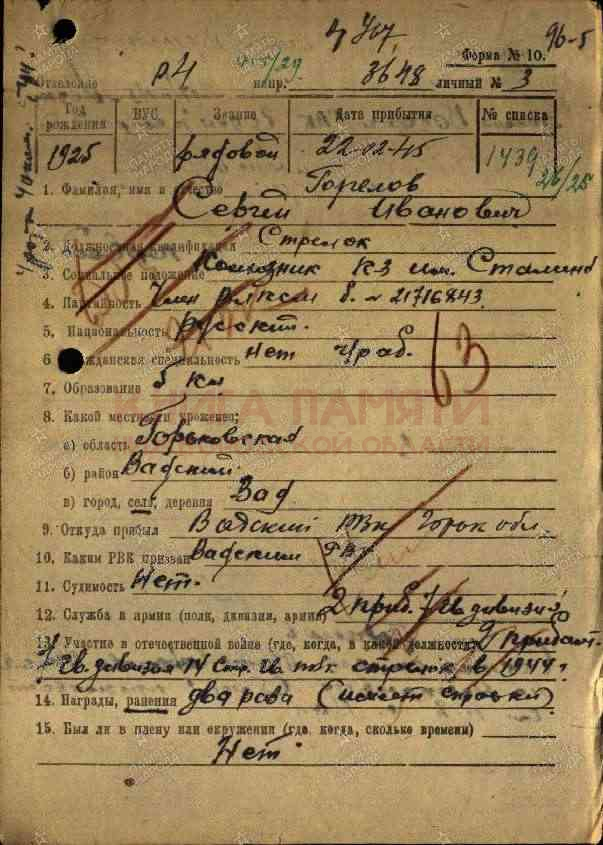 96-5
Форма № 10.
Отделение
напр. 3648 личный № 3
Год рождения
ВУС.
Звание
Дата прибытия
№ списка
1925
рядовой
22-02-45
1439
26/25
1. Фамилия, имя и отчество Горелов
Сергей Иванович
2. Должностная квалификация Стрелок
3. Социальное положение Колхозник к-з им. Сталина
4. Партийность Член ВЛКСМ б. № 21716843
5. Национальность Русский.
6. Гражданская специальность Нет
63
7. Образование 5 кл
КНИГА ПАМЯТИ
8. Какой местности уроженец:
а) область Горьковская
б) район Вадский.
в) город, село, деревня Вад
9. Откуда прибыл Вадский РВК Горьк обл.
10. Каким РВК призван Вадским РВК
11. Судимость Нет.
12. Служба в армии (полк, дивизия, армия) 2 приб.
13. Участие в отечественной войне (где, когда, в какой должности) 2 прибалт.
гв. дивизия 14 стр. гв. полк стрелок в 1944 г
14. Награды, ранения два раза (имеет справки)
15. Был ли в плену или окружении (где, когда, сколько времени)
Нет